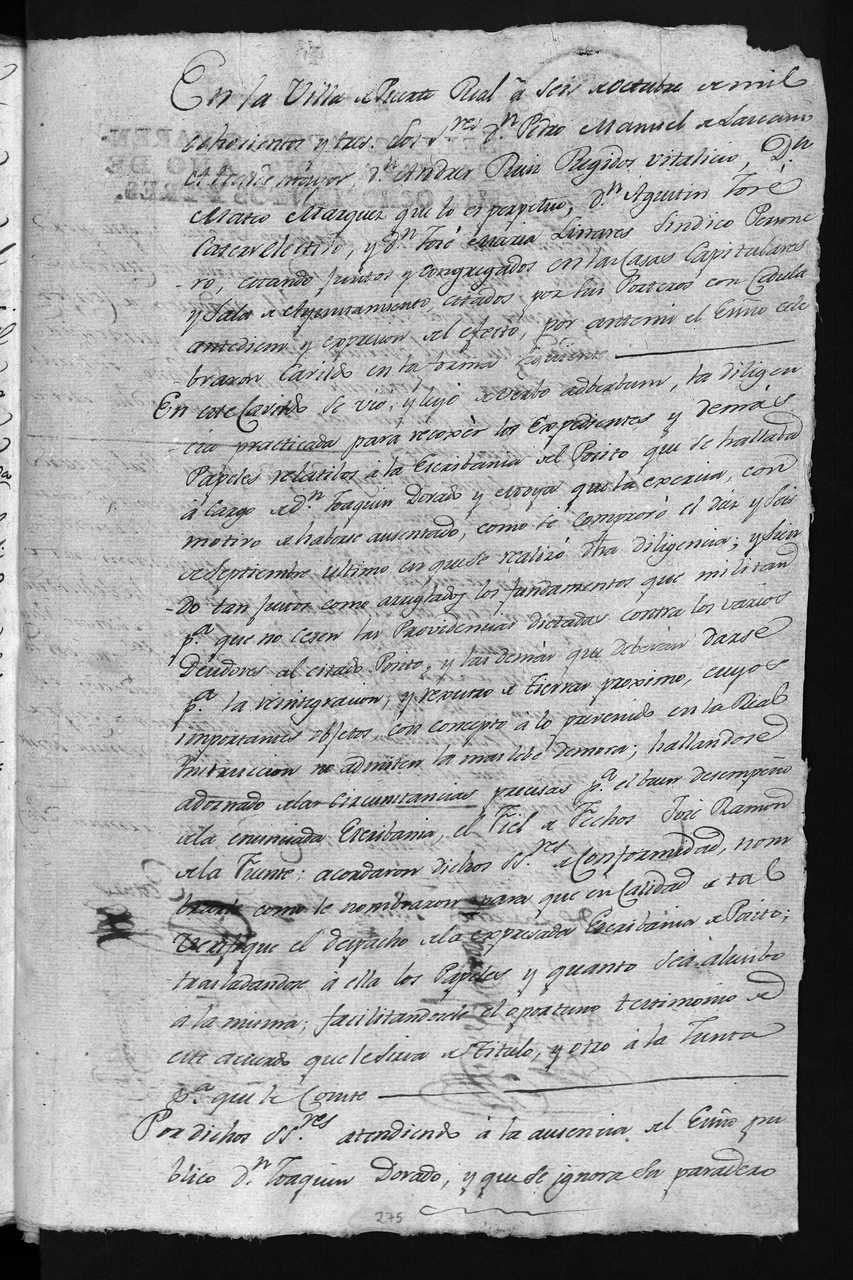 En la Villa de Puente Real â seis de octubre de mil
ochosientos y tres. Los S.res D.n Pedro Manuel de
Alcalde mayor, D.n Andres Ruiz Regidor vitalicio, D.n
Mateo Marquez que lo es perpetuo, D.n Agustin José
electivo, y D.n José Maria Linares Sindico Persone
-ro, estando juntos y congregados en las Casas Capitulares
y Sala de Ayuntamiento, citados por los Porteros con Cedula
antediem y exprecion del efecto, por antemi el Essno cele
-braron Cavildo en la forma siguiente
En este Cavildo se vio, y leyó de verbo adberbum, la diligen
cia practicada para recoxèr los Expedientes y demás
Papeles relativos â la Escribania del Posito que se hallaba
â cargo de D.n Joaquin Dorado y que la exercia, con
motivo de haberse ausentado, como se comprovó el dia y seis
de Septiembre ultimo en que se realizó dha diligencia; y sien
-do tan justos como arreglados los fundamentos que militan
p.a que no cesen las Providencias dictadas contra los varios
Deudores al citado Posito, y las demás que deberan darse
p.a la reintegracion, y repartto de tierras proximo, cuyos
importantes objetos con concepto â lo prevenido en la Real
Instruccion no admiten la mas lebe demora; hallandose
adornado de las circunstancias precisas p.a el buen desempeño
de la enunciada Escribania, el Fiel de Fechos José Ramon
de la Fuente; acordaron dichos SS.res de Conformidad, nom
brarle como le nombraron para que en Calidad de tal
Verifique el despacho de la expresada Escribania de Posito;
trasladandose â ella los Papeles y quanto sea alusibo
a la misma; facilitandosele el oportuno testimonio de
este acuerdo que le sirva de titulo, y otro â la Junta
p.a que le Conste
Por dichos SS.res atendiendo â la ausencia del Essno pu
blico D.n Joaquin Dorado, y que se ignora su paradero
275